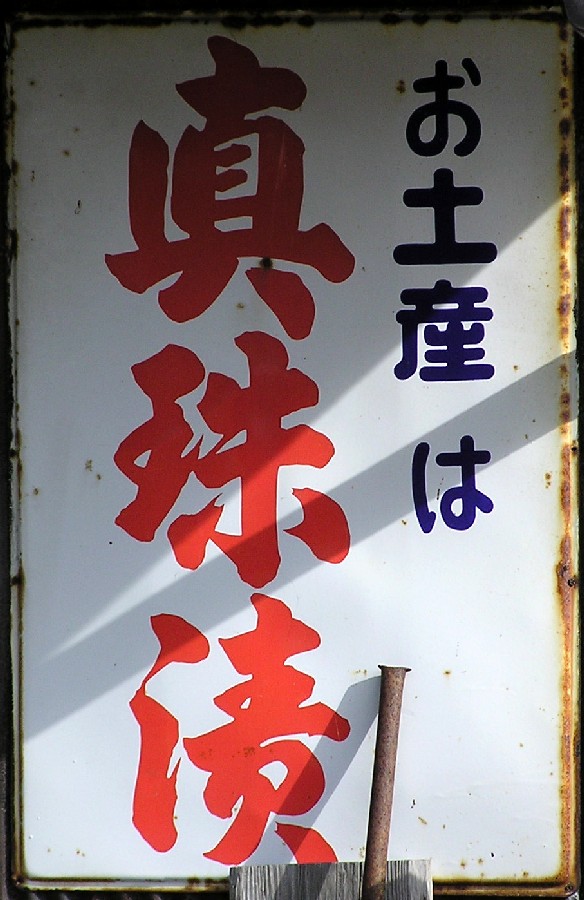 お土産は
真珠漬